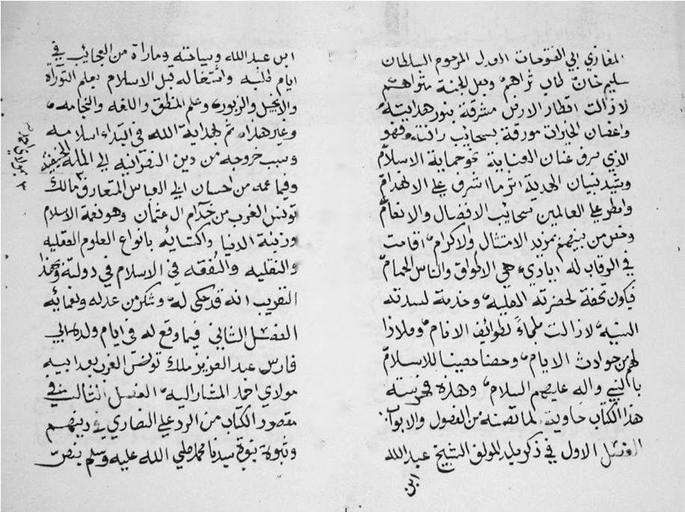 المغازي ابي الفتوحات العدل المرحوم السلطان
سليم خان طاب ثراهم وجعل الجنة مثواهم
لا زالت اقطار الارض مشرقة بنور هدايته
واغصان الخيرات مورقة بسحائب رافته وفهو
الذي صرف عنان العناية نحو حماية الاسلام
وشيد بنيان الهداية اثر ما اشرف على الانهدام
وامطر على العالمين سحائب الافضال والانعام
وخص من بينهم بمزيد الامتثال والاكرام اقامت
في الرقاب له ايادي هي الاطواق والناس الحمام
فيكون تحفة لحضرته العلية وخدمة لسدته
السنية لا زالت ملجاء لطوائف الانام وملاذا
لهم من حوادث الايام وحصنا حصينا للاسلام
بالنبي واله عليهم السلام وهذه فهرسته
هذا الكتاب حاوية لما تضمنه من الفصول والابواب
الفصل الاول في ذكر بلد المولف الشيخ عبد الله
ابن
ابن عبد الله وسياحته وماراه من العجائب في
ايام طلبه واشتغاله قبل الاسلام بعلم التوراة
والانجيل والزبور وعلم المنطق واللغه والنجامه
وغير هذا ثم لهداية الله في ابتداء اسلامه
وسبب خروجه من دين النصرانيه الى الملة الحنيفية
وفيما عمه من احسان ابي العباس المتعارف مالك
تونس الغرب من خدام ال عثمان وهو نعمة الاسلام
وزينة الدنيا واكتسابه بانواع العلوم العقليه
والنقليه والتفقه في الاسلام في دولته وهذا
التقريب انه قد حكى له وشكر من عدله ونعمائه
الفصل الثاني فيما وقع له في ايام ولده ابي
فارس عبد العزيز ملك تونس الغرب بعد ابيه
مولاي احمد المشار اليه الفصل الثالث في
مقصود الكتاب من الرد على النصارى في دينهم
وثبوت نبوة سيدنا محمد صلى الله عليه وسلم بنص